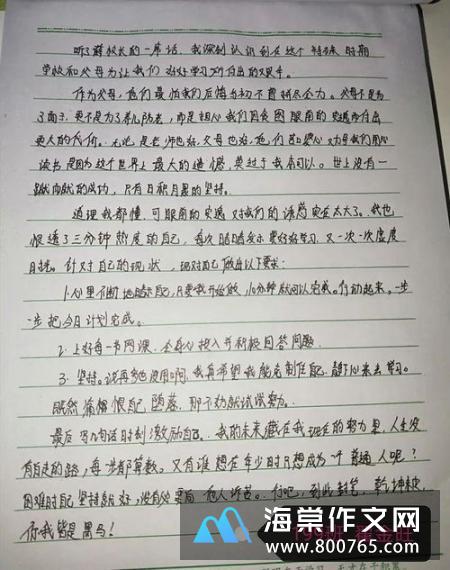 听了薛校长的一席话，我深刻认识到在这个特殊时期
学校和父母为让我们好好学习所付出的艰辛。
作为父母，他们最怕我们后悔当初不曾拼尽全力。父母不是为
了面子，更不是为了养儿防老，而是担心我们因贪图眼前的安逸而付出
更大的代价。无论是老师也好，父母也好，他们苦口婆心劝导我们用心
读书是因为这个世界上最大的遗憾，莫过于我本可以。世上没有一
蹴而就的成功，只有日积月累的坚持。
道理我都懂，可眼前的安逸对我们的诱惑实在太大了。我也
恨透了三分钟热度的自己，每次暗暗发示要好好学习，又一次一次虚度
日子。针对自己的现状，现对自己做出以下要求：
1.心里不断地暗示自己，只要我开始做，10分钟就可以完成。行动起来。一步
一步把今日计划完成。
2.上好每一节网课，全身心投入并积极回答问题。
3.坚持。说再多也没用啊，我真希望我能克制自己，静下心来去学习。
既然痛恨自己堕落，那不妨就试试努力。
最后写几句话时刻激励自己。我的未来藏在我现在的努力里，人生没
有白走的路，每一步都算数。又有谁想在年少时只想成为一个普通人呢？
困难时自己坚持就好，没有必要向他人诉苦。行吧，到此封笔，乾坤未定，
你我皆是黑马！
海棠作文网
www.800765.com